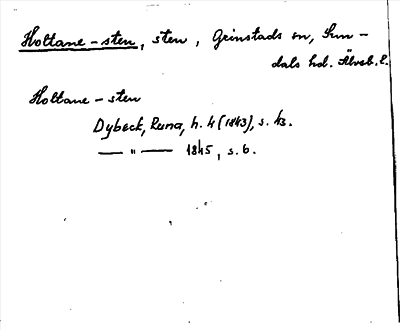 Holtane-sten, sten, Grinstads sn, Sun-
dals hd. Älvsb. l.
Holtane-sten
Dybeck, Runa, h. 4 (1843), s. 43.
— " — 1845, s. 6.